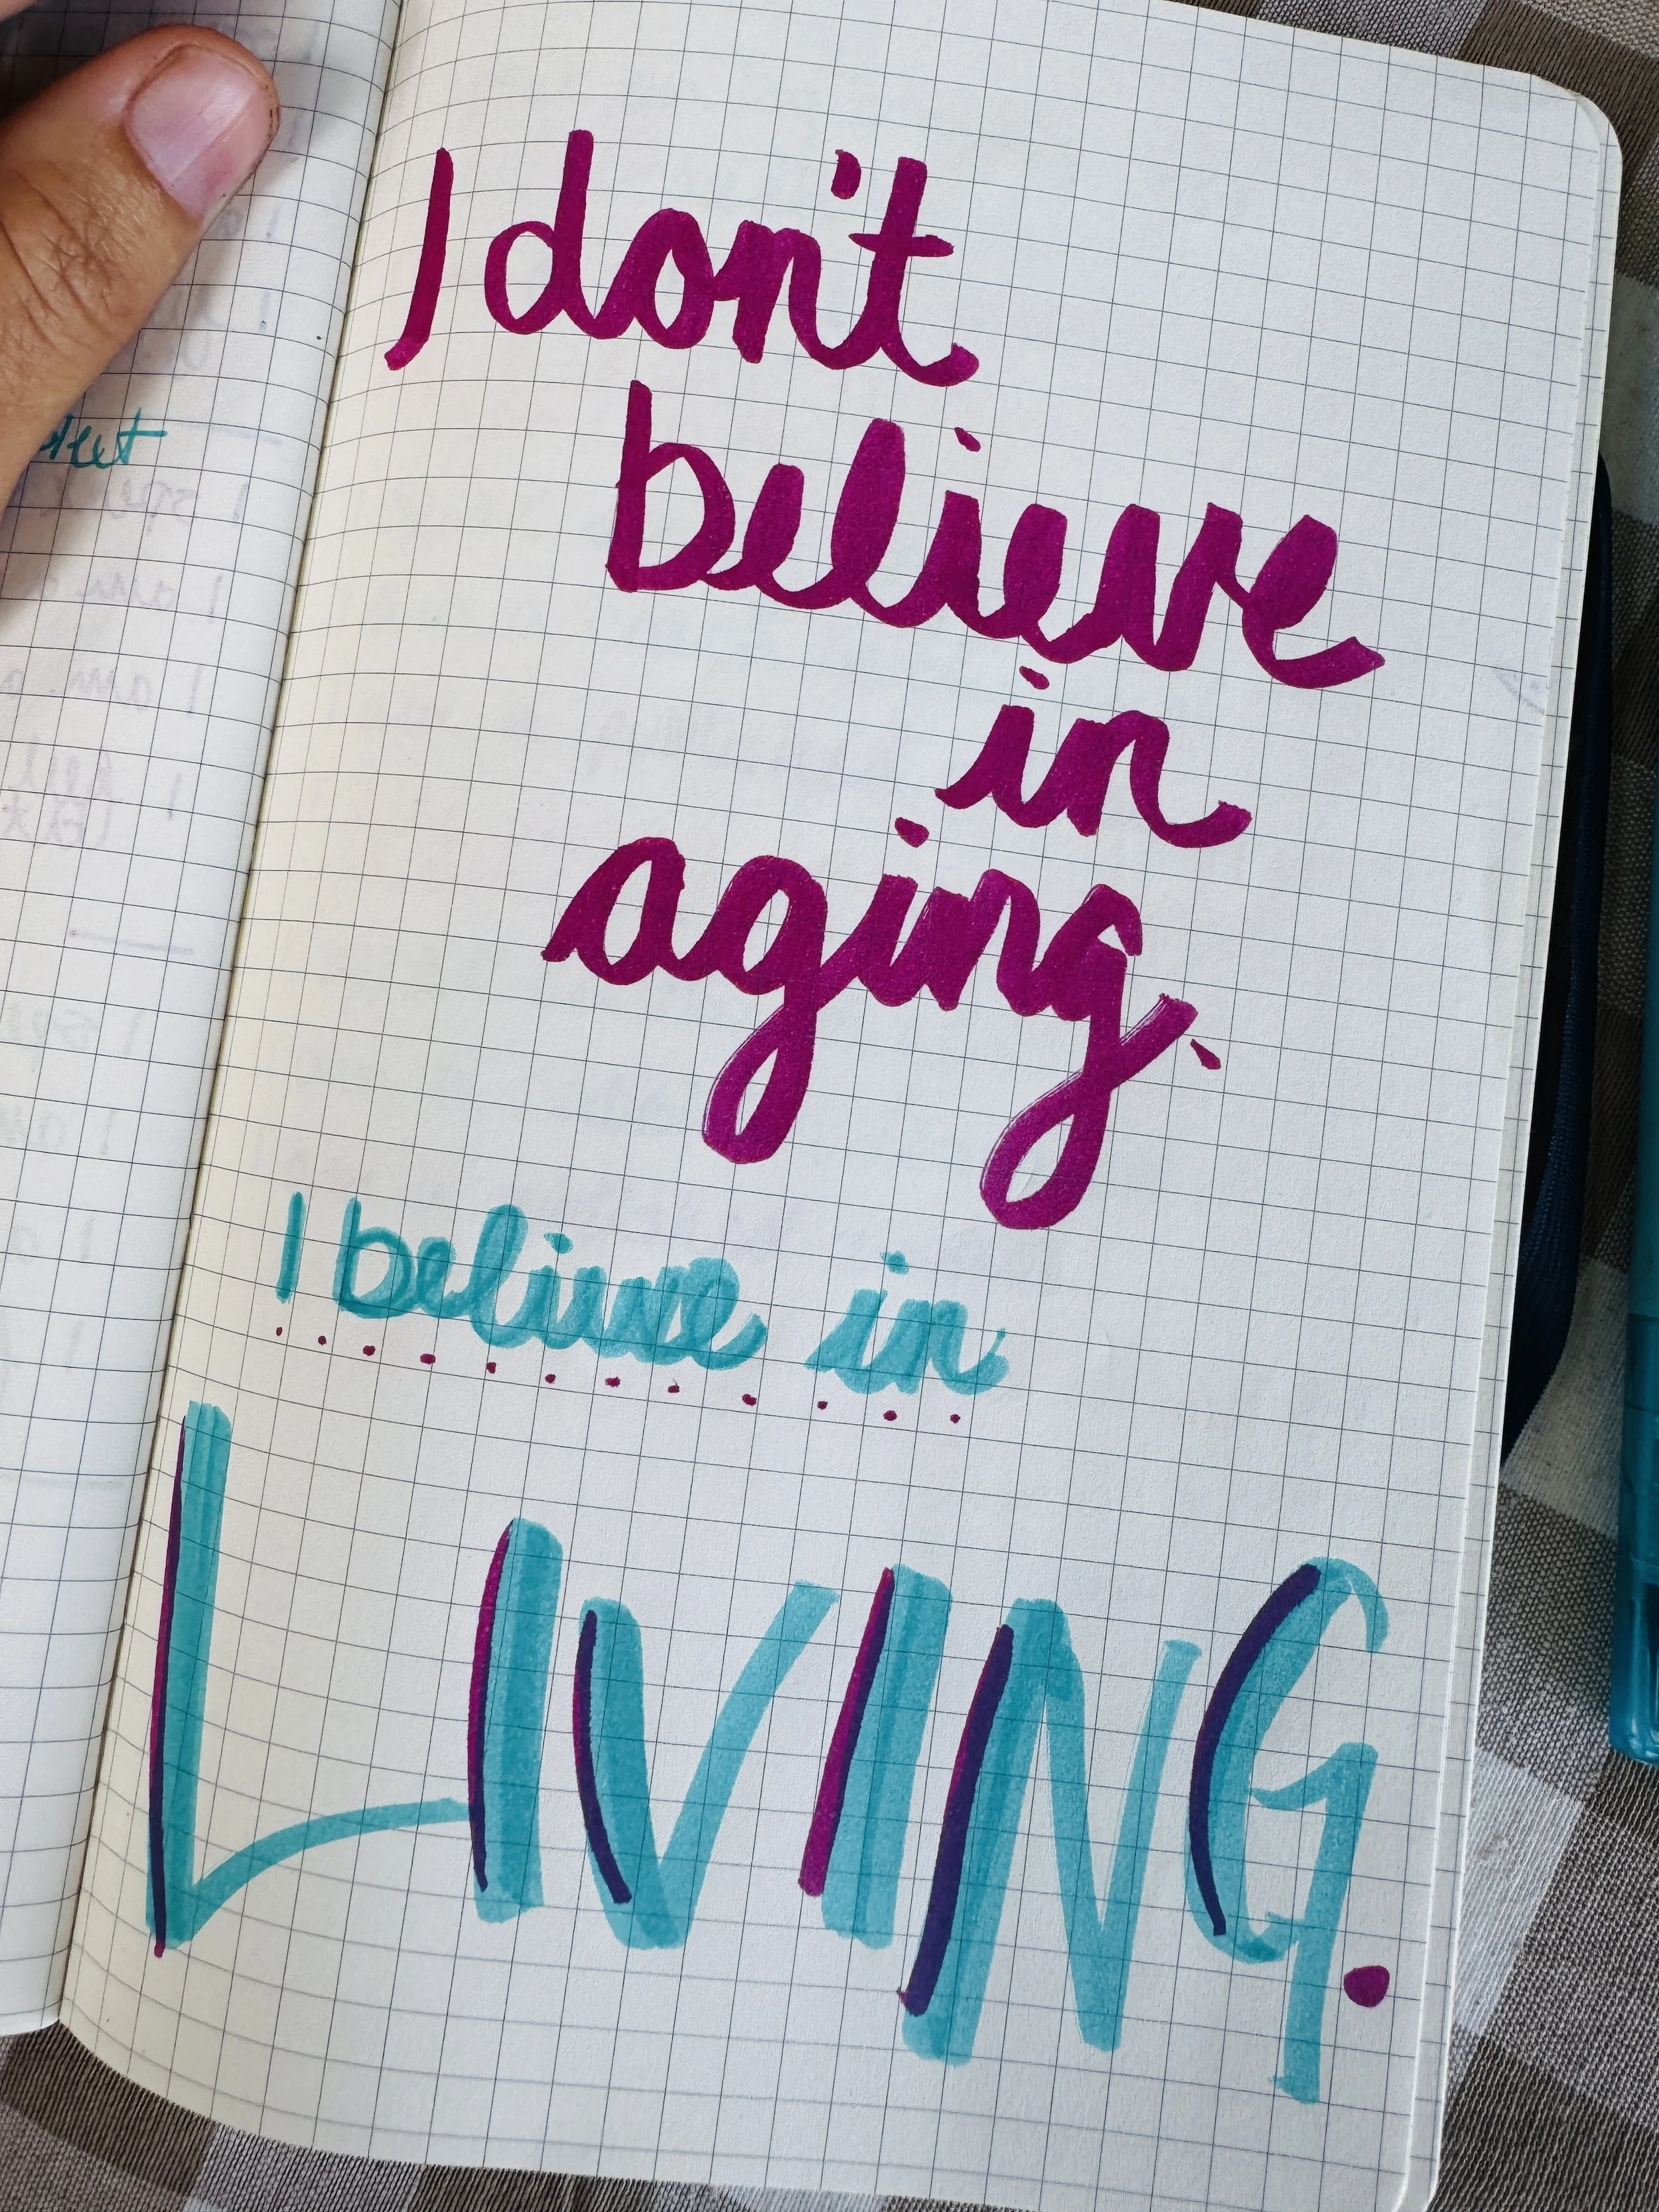 I don't
believe
in
aging.
I believe in
LIVING.